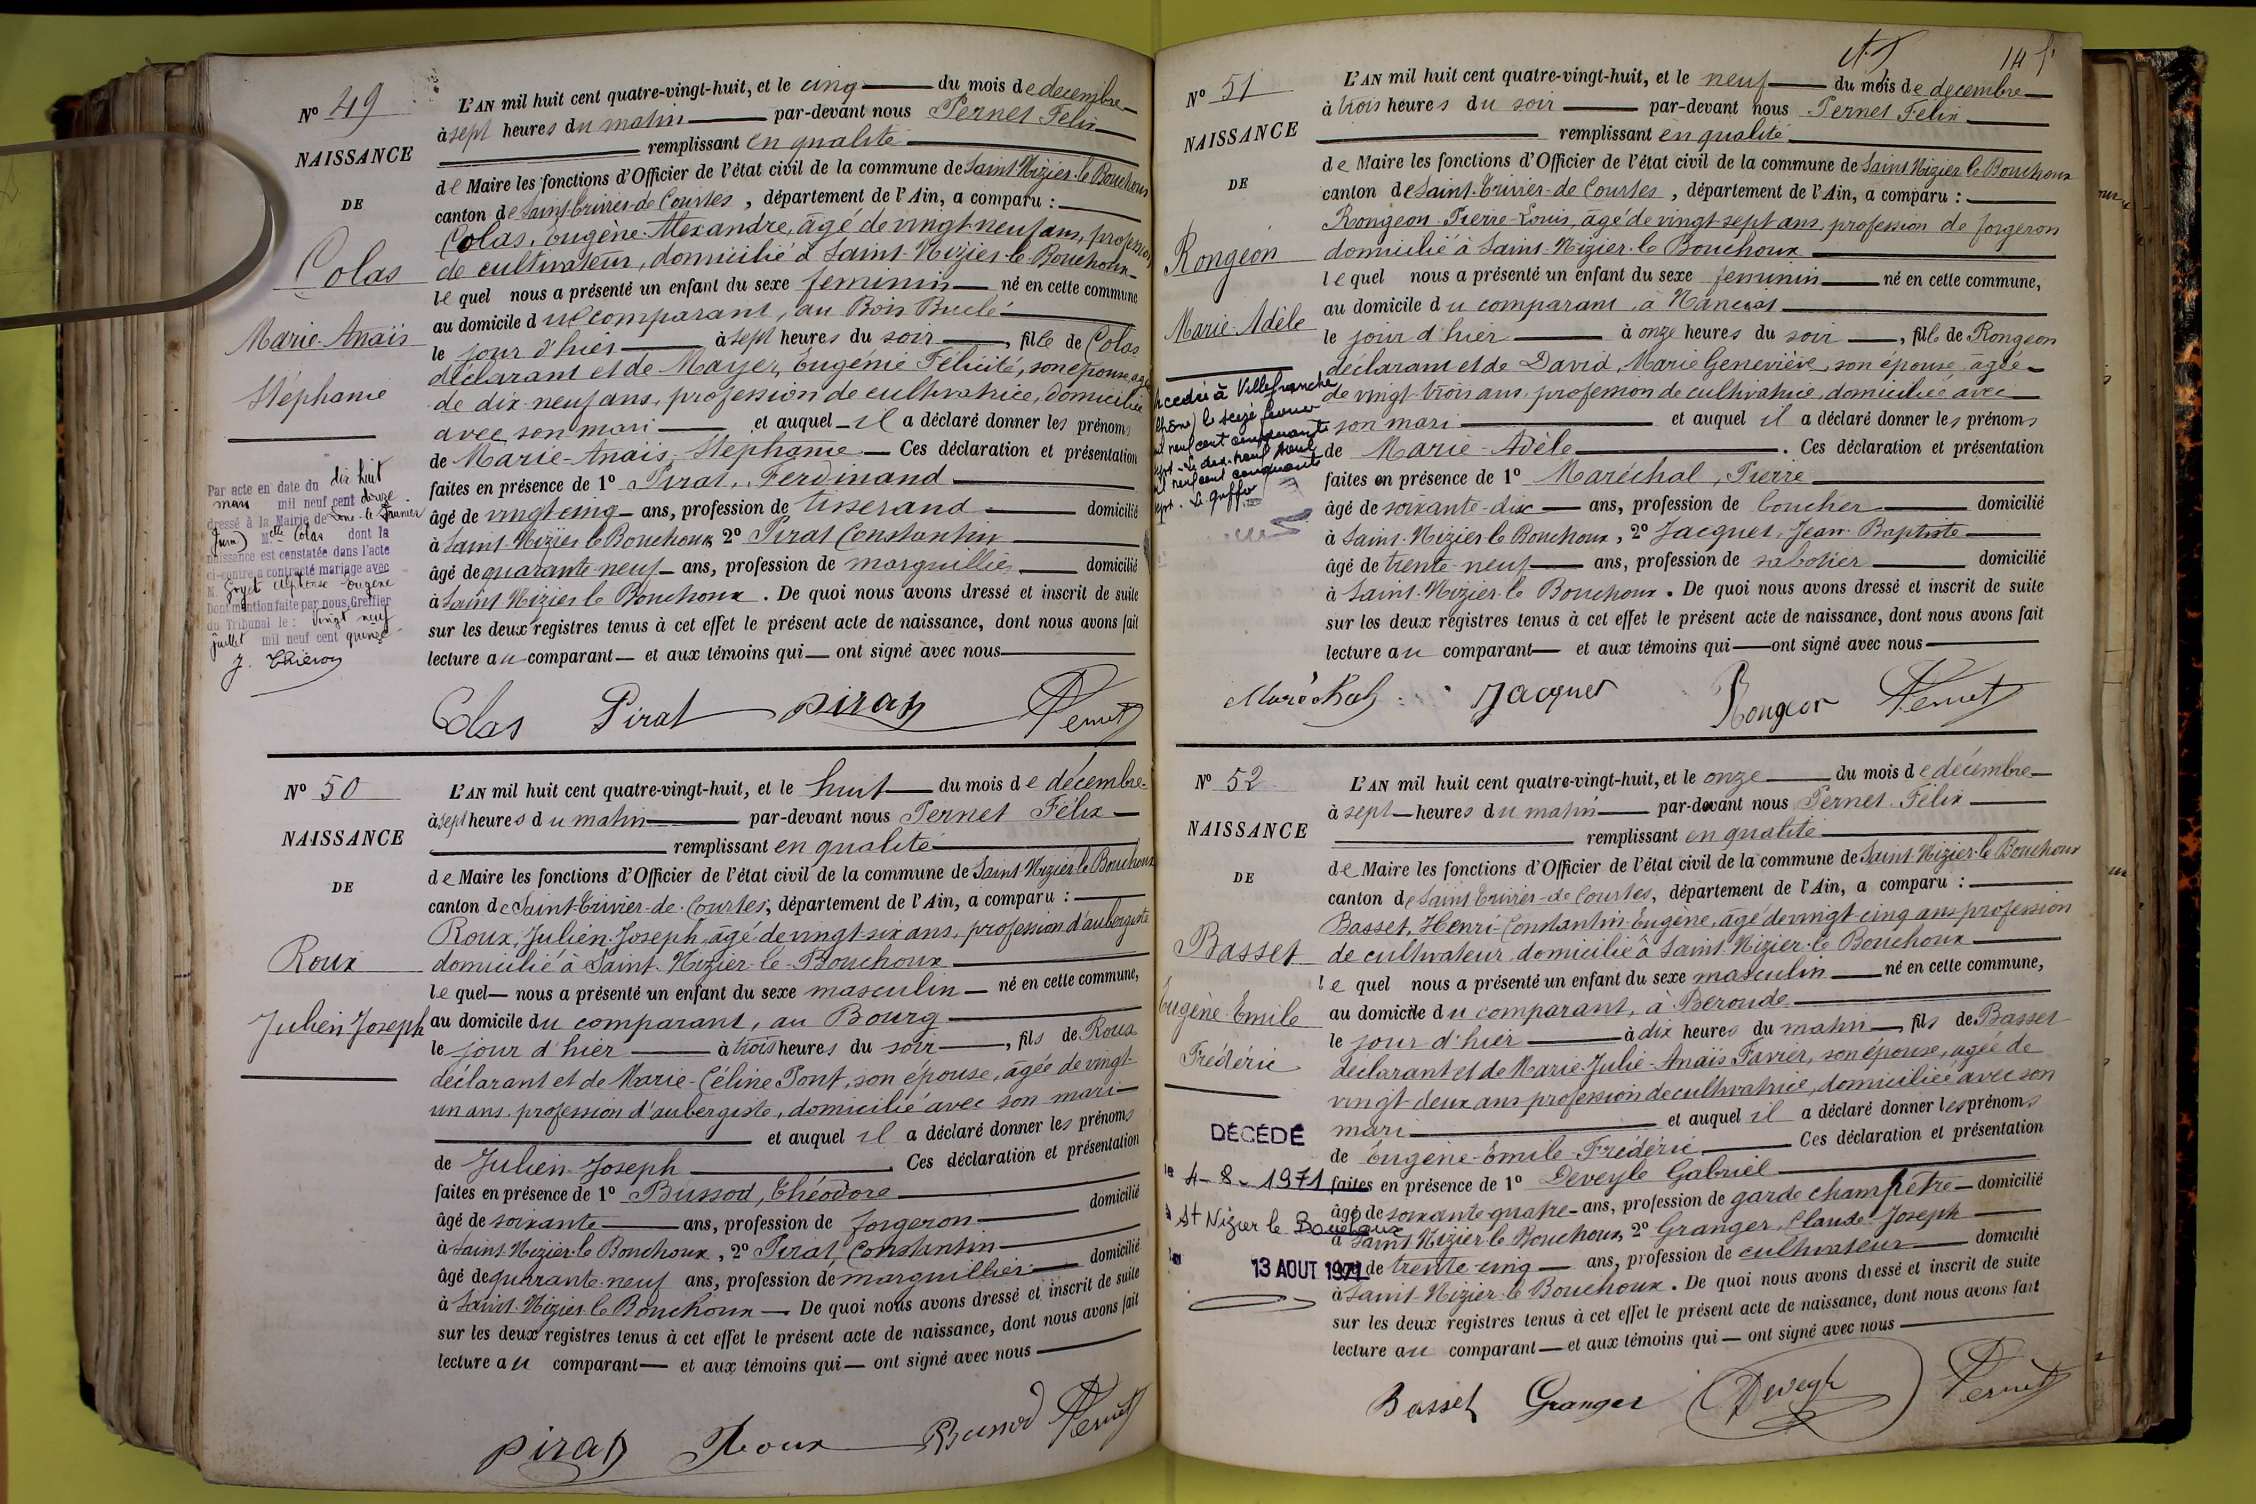 Nº 49
NAISSANCE
DE
Colas
Marie-Anaïs
Stéphanie
Par acte en date du dix huit
mars mil neuf cent douze
dressé à la Mairie de Lons-le-Saunier
(Jura) Melle Colas dont la
naissance est constatée dans l'acte
ci-contre a contracté mariage avec
M. Goyet Alphonse-Eugène
Dont mention faite par nous, Greffier
du Tribunal le : vingt neuf
juillet mil neuf cent quinze
L'AN mil huit cent quatre-vingt-huit, et le cinq du mois de décembre
à sept heures du matin par-devant nous Pernet Félix
remplissant en qualité
de Maire les fonctions d'Officier de l'état civil de la commune de Saint-Nizier-le-Bouchoux
canton de Saint-Trivier-de-Courtes, département de l'Ain, a comparu :
Colas, Eugène-Alexandre, âgé de vingt-neuf ans, profession
de cultivateur, domicilié à Saint-Nizier-le-Bouchoux
lequel nous a présenté un enfant du sexe féminin né en cette commune
au domicile du comparant, au Bois
le jour d'hier à sept heures du soir, fille de Colas
déclarant et de Mayer, Eugénie Félicité, son épouse, âgée
de dix-neuf ans, profession de cultivatrice, domiciliée
avec son mari et auquel il a déclaré donner les prénoms
de Marie-Anaïs-Stéphanie Ces déclaration et présentation
faites en présence de 1º Pirat, Ferdinand
âgé de vingt cinq ans, profession de tisserand domicilié
à Saint-Nizier le Bouchoux, 2º Pirat Constantin
âgé de quarante-neuf ans, profession de marguillier domicilié
à Saint-Nizier le Bouchoux. De quoi nous avons dressé et inscrit de suite
sur les deux registres tenus à cet effet le présent acte de naissance, dont nous avons fait
lecture au comparant et aux témoins qui ont signé avec nous
Colas Pirat Pirat Pernet
Nº 50
NAISSANCE
DE
Roux
Julien Joseph
L'AN mil huit cent quatre-vingt-huit, et le huit du mois de décembre
à sept heures du matin par-devant nous Pernet Félix
remplissant en qualité
de Maire les fonctions d'Officier de l'état civil de la commune de Saint-Nizier-le-Bouchoux
canton de Saint-Trivier-de-Courtes, département de l'Ain, a comparu :
Roux, Julien-Joseph, âgé de vingt-six ans, profession d'aubergiste
domicilié à Saint-Nizier-le-Bouchoux
lequel nous a présenté un enfant du sexe masculin né en cette commune,
au domicile du comparant, au Bourg
le jour d'hier à trois heures du soir, fils de Roux
déclarant et de Marie-Céline Pont, son épouse, âgée de vingt-
un ans, profession d'aubergiste, domicilié avec son mari
et auquel il a déclaré donner les prénoms
de Julien-Joseph. Ces déclaration et présentation
faites en présence de 1º Bussod, Théodore
âgé de soixante ans, profession de forgeron domicilié
à Saint-Nizier-le Bouchoux, 2º Pirat, Constantin
âgé de quarante-neuf ans, profession de marguillier domicilié
à Saint-Nizier le Bouchoux De quoi nous avons dressé et inscrit de suite
sur les deux registres tenus à cet effet le présent acte de naissance, dont nous avons fait
lecture au comparant et aux témoins qui ont signé avec nous
Pirat Roux Bussod Pernet
Nº 51
NAISSANCE
DE
Rongeon
Marie-Adèle
cédée à Villefranche
(Rhône) le seize février
mil neuf cent cinquante
sept - Le dix-neuf Avril
mil neuf cent cinquante
sept. Le Greffier
L'AN mil huit cent quatre-vingt-huit, et le neuf du mois de décembre
à trois heures du soir par-devant nous Pernet Félix
remplissant en qualité
de Maire les fonctions d'Officier de l'état civil de la commune de Saint Nizier le Bouchoux
canton de Saint-Trivier-de-Courtes, département de l'Ain, a comparu :
Rongeon Pierre-Louis, âgé de vingt-sept ans, profession de forgeron
domicilié à Saint-Nizier-le Bouchoux
lequel nous a présenté un enfant du sexe féminin né en cette commune,
au domicile du comparant, à
le jour d'hier à onze heures du soir, fille de Rongeon
déclarant et de David, Marie Geneviève, son épouse, âgée
de vingt-trois ans, profession de cultivatrice, domiciliée avec
son mari et auquel il a déclaré donner les prénoms
de Marie-Adèle. Ces déclaration et présentation
faites en présence de 1º Maréchal, Pierre
âgé de soixante-dix ans, profession de boucher domicilié
à Saint-Nizier le Bouchoux, 2º Jacquet, Jean-Baptiste
âgé de trente-neuf ans, profession de sabotier domicilié
à Saint-Nizier-le Bouchoux. De quoi nous avons dressé et inscrit de suite
sur les deux registres tenus à cet effet le présent acte de naissance, dont nous avons fait
lecture au comparant et aux témoins qui ont signé avec nous
Maréchal Jacquet Rongeon Pernet
Nº 52
NAISSANCE
DE
Basset
Eugène-Emile
Frédéric
DÉCÉDÉ
le 4-8-1971
à St Nizier le Bouchoux
13 AOUT 1971
L'AN mil huit cent quatre-vingt-huit, et le onze du mois de décembre
à sept heures du matin par-devant nous Pernet Félix
remplissant en qualité
de Maire les fonctions d'Officier de l'état civil de la commune de Saint-Nizier-le-Bouchoux
canton de Saint Trivier-de-Courtes, département de l'Ain, a comparu :
Basset, Henri-Constantin-Eugène, âgé de vingt-cinq ans, profession
de cultivateur, domicilié à Saint Nizier-le Bouchoux
lequel nous a présenté un enfant du sexe masculin né en cette commune,
au domicile du comparant, à Béroude
le jour d'hier à dix heures du matin, fils de Basset
déclarant et de Marie-Julie-Anaïs Favier, son épouse, âgée de
vingt-deux ans profession de cultivatrice, domiciliée avec son
mari et auquel il a déclaré donner les prénoms
de Eugène-Emile-Frédéric Ces déclaration et présentation
faites en présence de 1º Deveyle Gabriel
âgé de soixante-quatre ans, profession de garde champêtre domicilié
à Saint Nizier-le Bouchoux, 2º Granger, Claude-Joseph
âgé de trente-cinq ans, profession de cultivateur domicilié
à Saint-Nizier-le Bouchoux. De quoi nous avons dressé et inscrit de suite
sur les deux registres tenus à cet effet le présent acte de naissance, dont nous avons fait
lecture au comparant et aux témoins qui ont signé avec nous
Basset Granger Deveyle Pernet